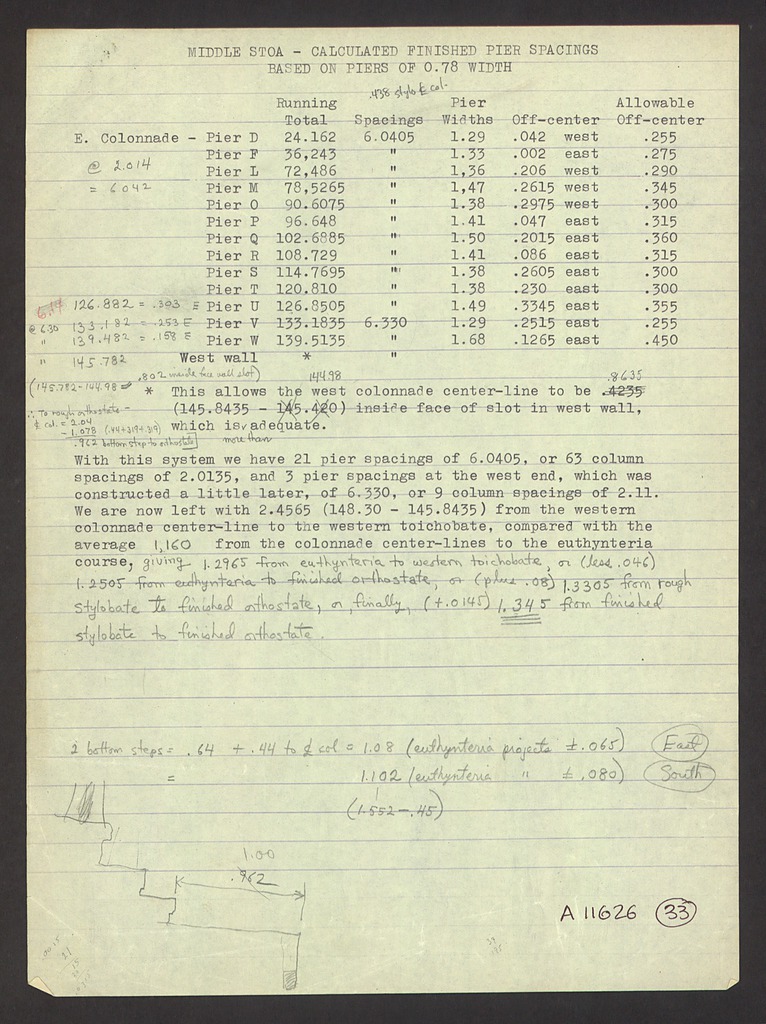 MIDDLE STOA - CALCULATED FINISHED PIER SPACINGS
BASED ON PIERS OF 0.78 WIDTH
.438 stylo ₵ col.
Running Pier Allowable
Total Spacings Widths Off-center Off-center
E. Colonnade - Pier D 24.162 6.0405 1.29 .042 west .255
@ 2.014 Pier F 36,243 " 1.33 .002 east .275
= 6.042 Pier L 72,486 " 1,36 .206 west .290
Pier M 78,5265 " 1,47 .2615 west .345
Pier O 90.6075 " 1.38 .2975 west .300
Pier P 96.648 " 1.41 .047 east .315
Pier Q 102.6885 " 1.50 .2015 east .360
Pier R 108.729 " 1.41 .086 east .315
Pier S 114.7695 " 1.38 .2605 east .300
Pier T 120.810 " 1.38 .230 east .300
6.14 126.882 = .303 E Pier U 126.8505 " 1.49 .3345 east .355
@ 6.30 133.182 = .253 E Pier V 133.1835 6.330 1.29 .2515 east .255
" 139.482 = .158 E Pier W 139.5135 " 1.68 .1265 east .450
" 145.782 West wall * "
.802 inside face wall slot) 144.98 .8635
(145.782-144.98 = * This allows the west colonnade center-line to be .4235
∴ To rough orthostate - (145.8435 - 145.420) inside face of slot in west wall,
₵ col. = 2.04
- 1.078 (.44+319+.319) which is adequate.
.962 bottom step to orthostate more than
With this system we have 21 pier spacings of 6.0405, or 63 column
spacings of 2.0135, and 3 pier spacings at the west end, which was
constructed a little later, of 6.330, or 9 column spacings of 2.11.
We are now left with 2.4565 (148.30 - 145.8435) from the western
colonnade center-line to the western toichobate, compared with the
average 1,160 from the colonnade center-lines to the euthynteria
course, giving 1.2965 from euthynteria to western toichobate, or (less .046)
1.2505 from euthynteria to finished orthostate, or (plus .08) 1.3305 from rough
stylobate to finished orthostate, or, finally, (+.0145) 1.345 from finished
stylobate to finished orthostate.
2 bottom steps = .64 + .44 to ₵ col = 1.08 (euthynteria projects ±.065) East
= 1.102 (euthynteria " ±.080) South
(1.552-.45)
1.00
.962
A 11626 33